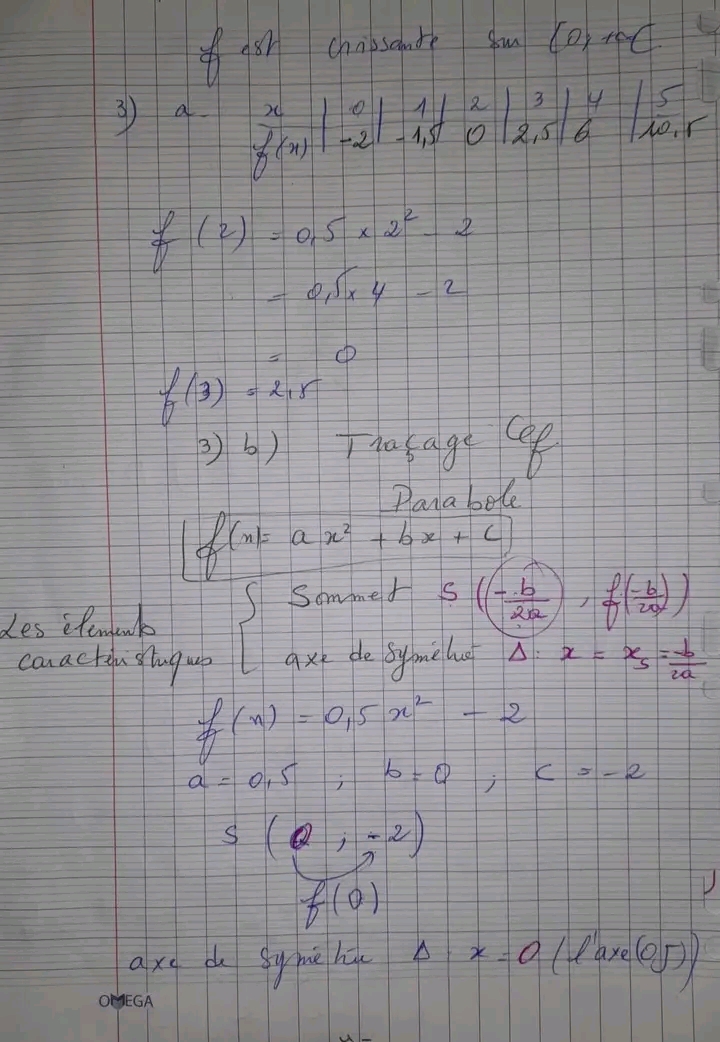 f est croissante sur [0, +∞[
3) a - x | 0 | 1 | 2 | 3 | 4 | 5
f(x) | -2 | -1,5 | 0 | 2,5 | 6 | 10,5
f(2) = 0,5 × 2² - 2
= 0,5 × 4 - 2
= 0
f(3) = 2,5
3) b) Traçage Cf
Parabole
f(x) = ax² + bx + c
Les éléments caractéristiques
Sommet S (-b/2a, f(-b/2a))
axe de symétrie Δ: x = xs = -b/2a
f(x) = 0,5 x² - 2
a = 0,5 ; b = 0 ; c = -2
S (0 ; -2)
f(0)
axe de symétrie Δ: x = 0 (l'axe (OJ))
OMEGA